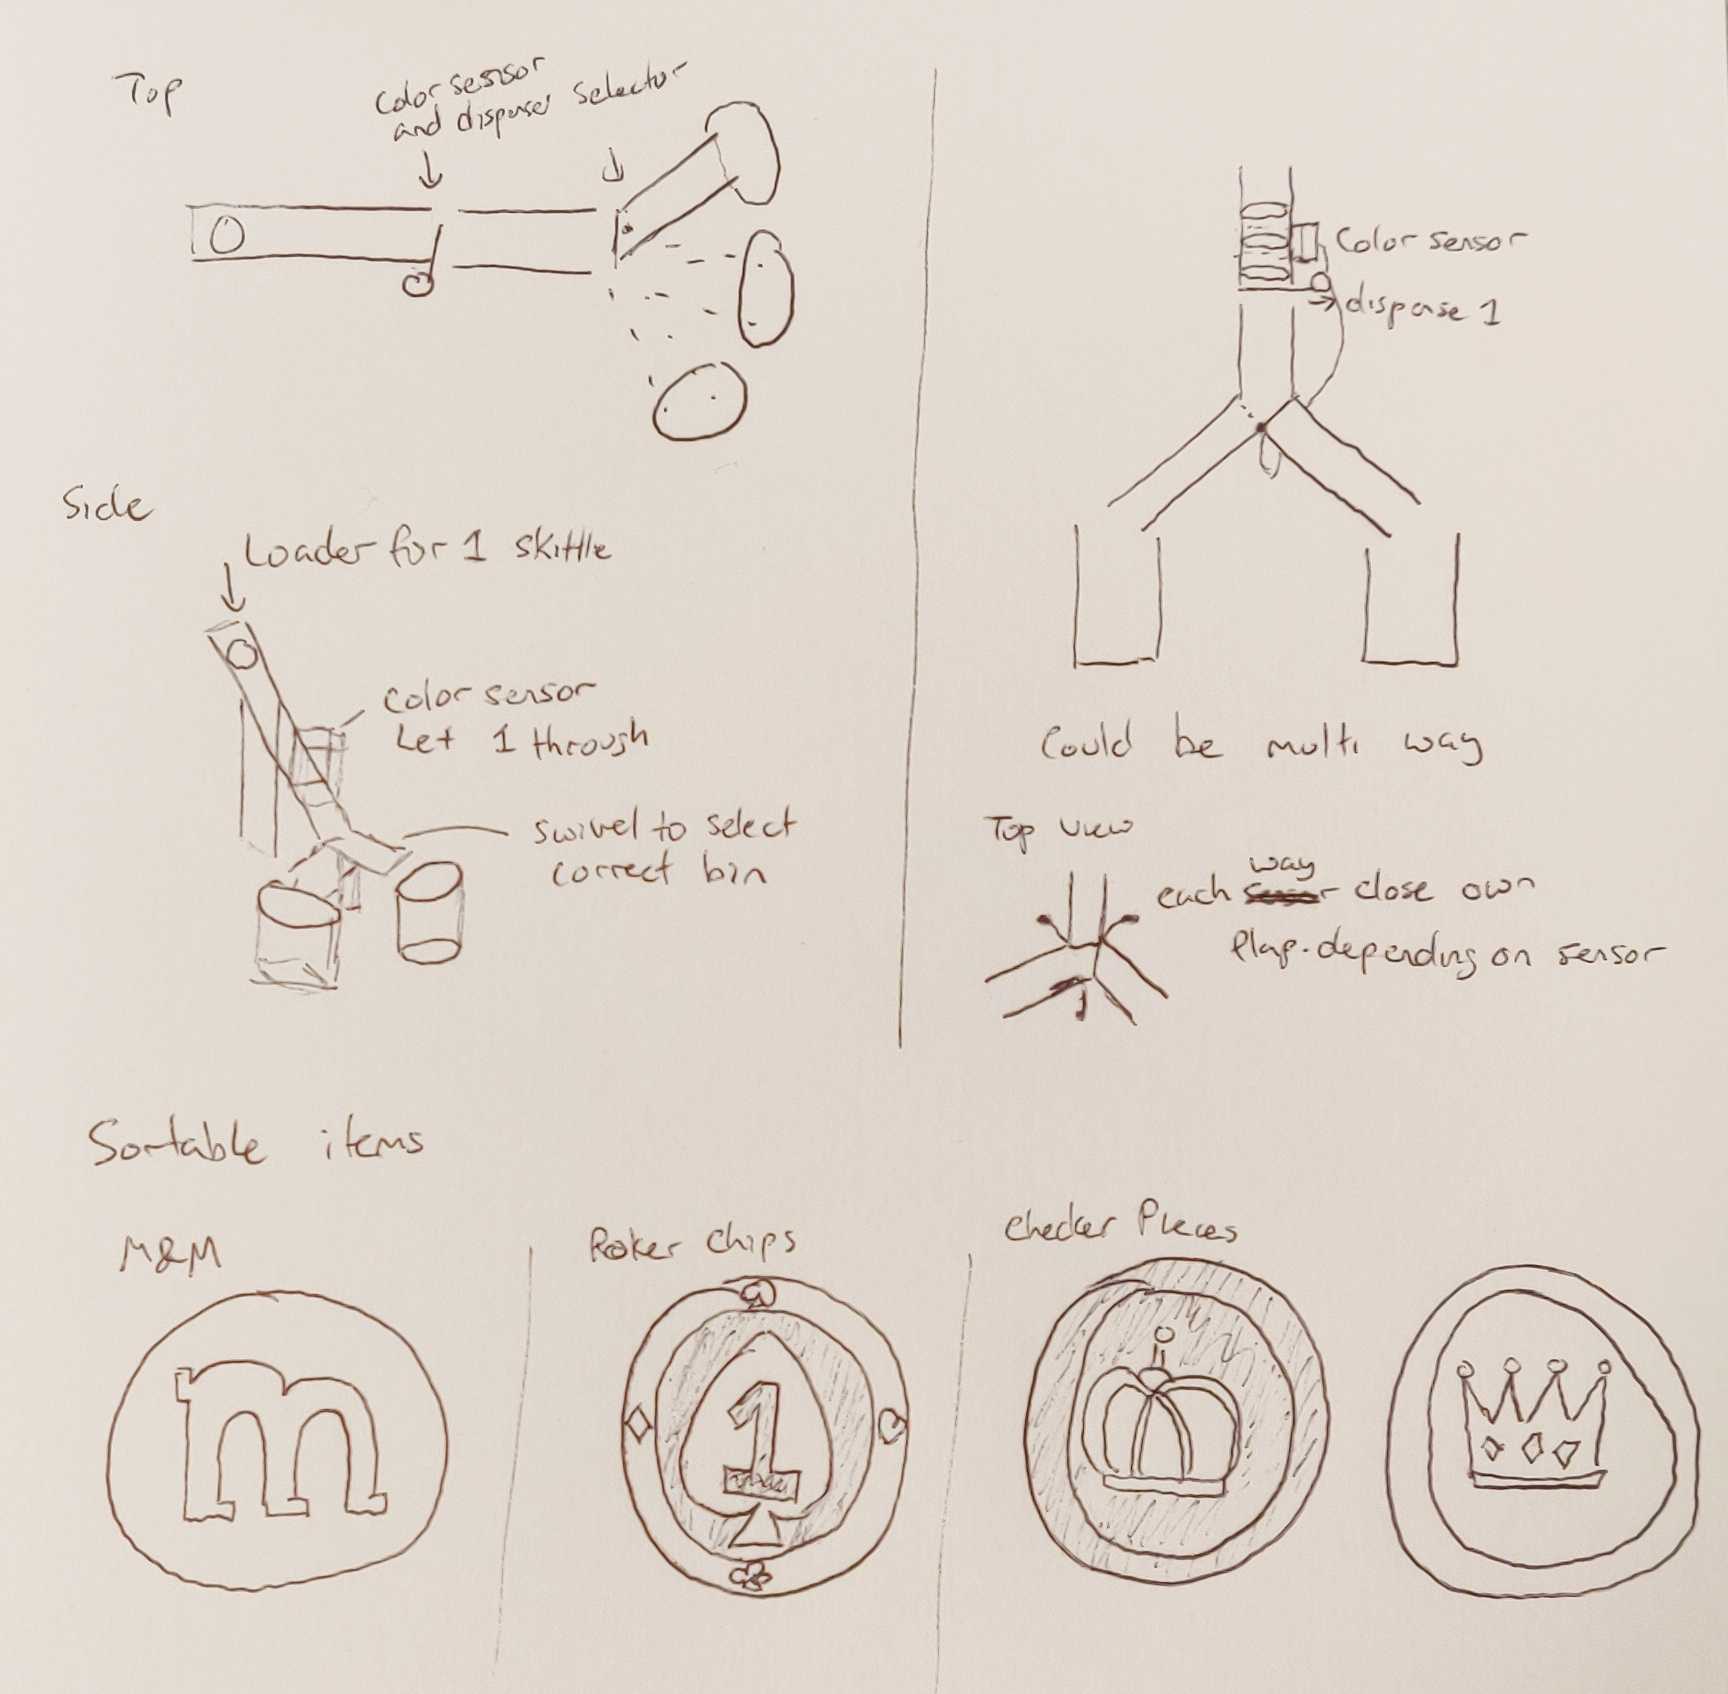 Top
Color sensor
and dispense selector
Side
Loader for 1 skittle
Color sensor
Let 1 through
Swivel to select
correct bin
Color sensor
dispense 1
Could be multi way
Top view
way
each close own
flap. depending on sensor
Sortable items
M&M
Poker Chips
Checker Pieces
m
1